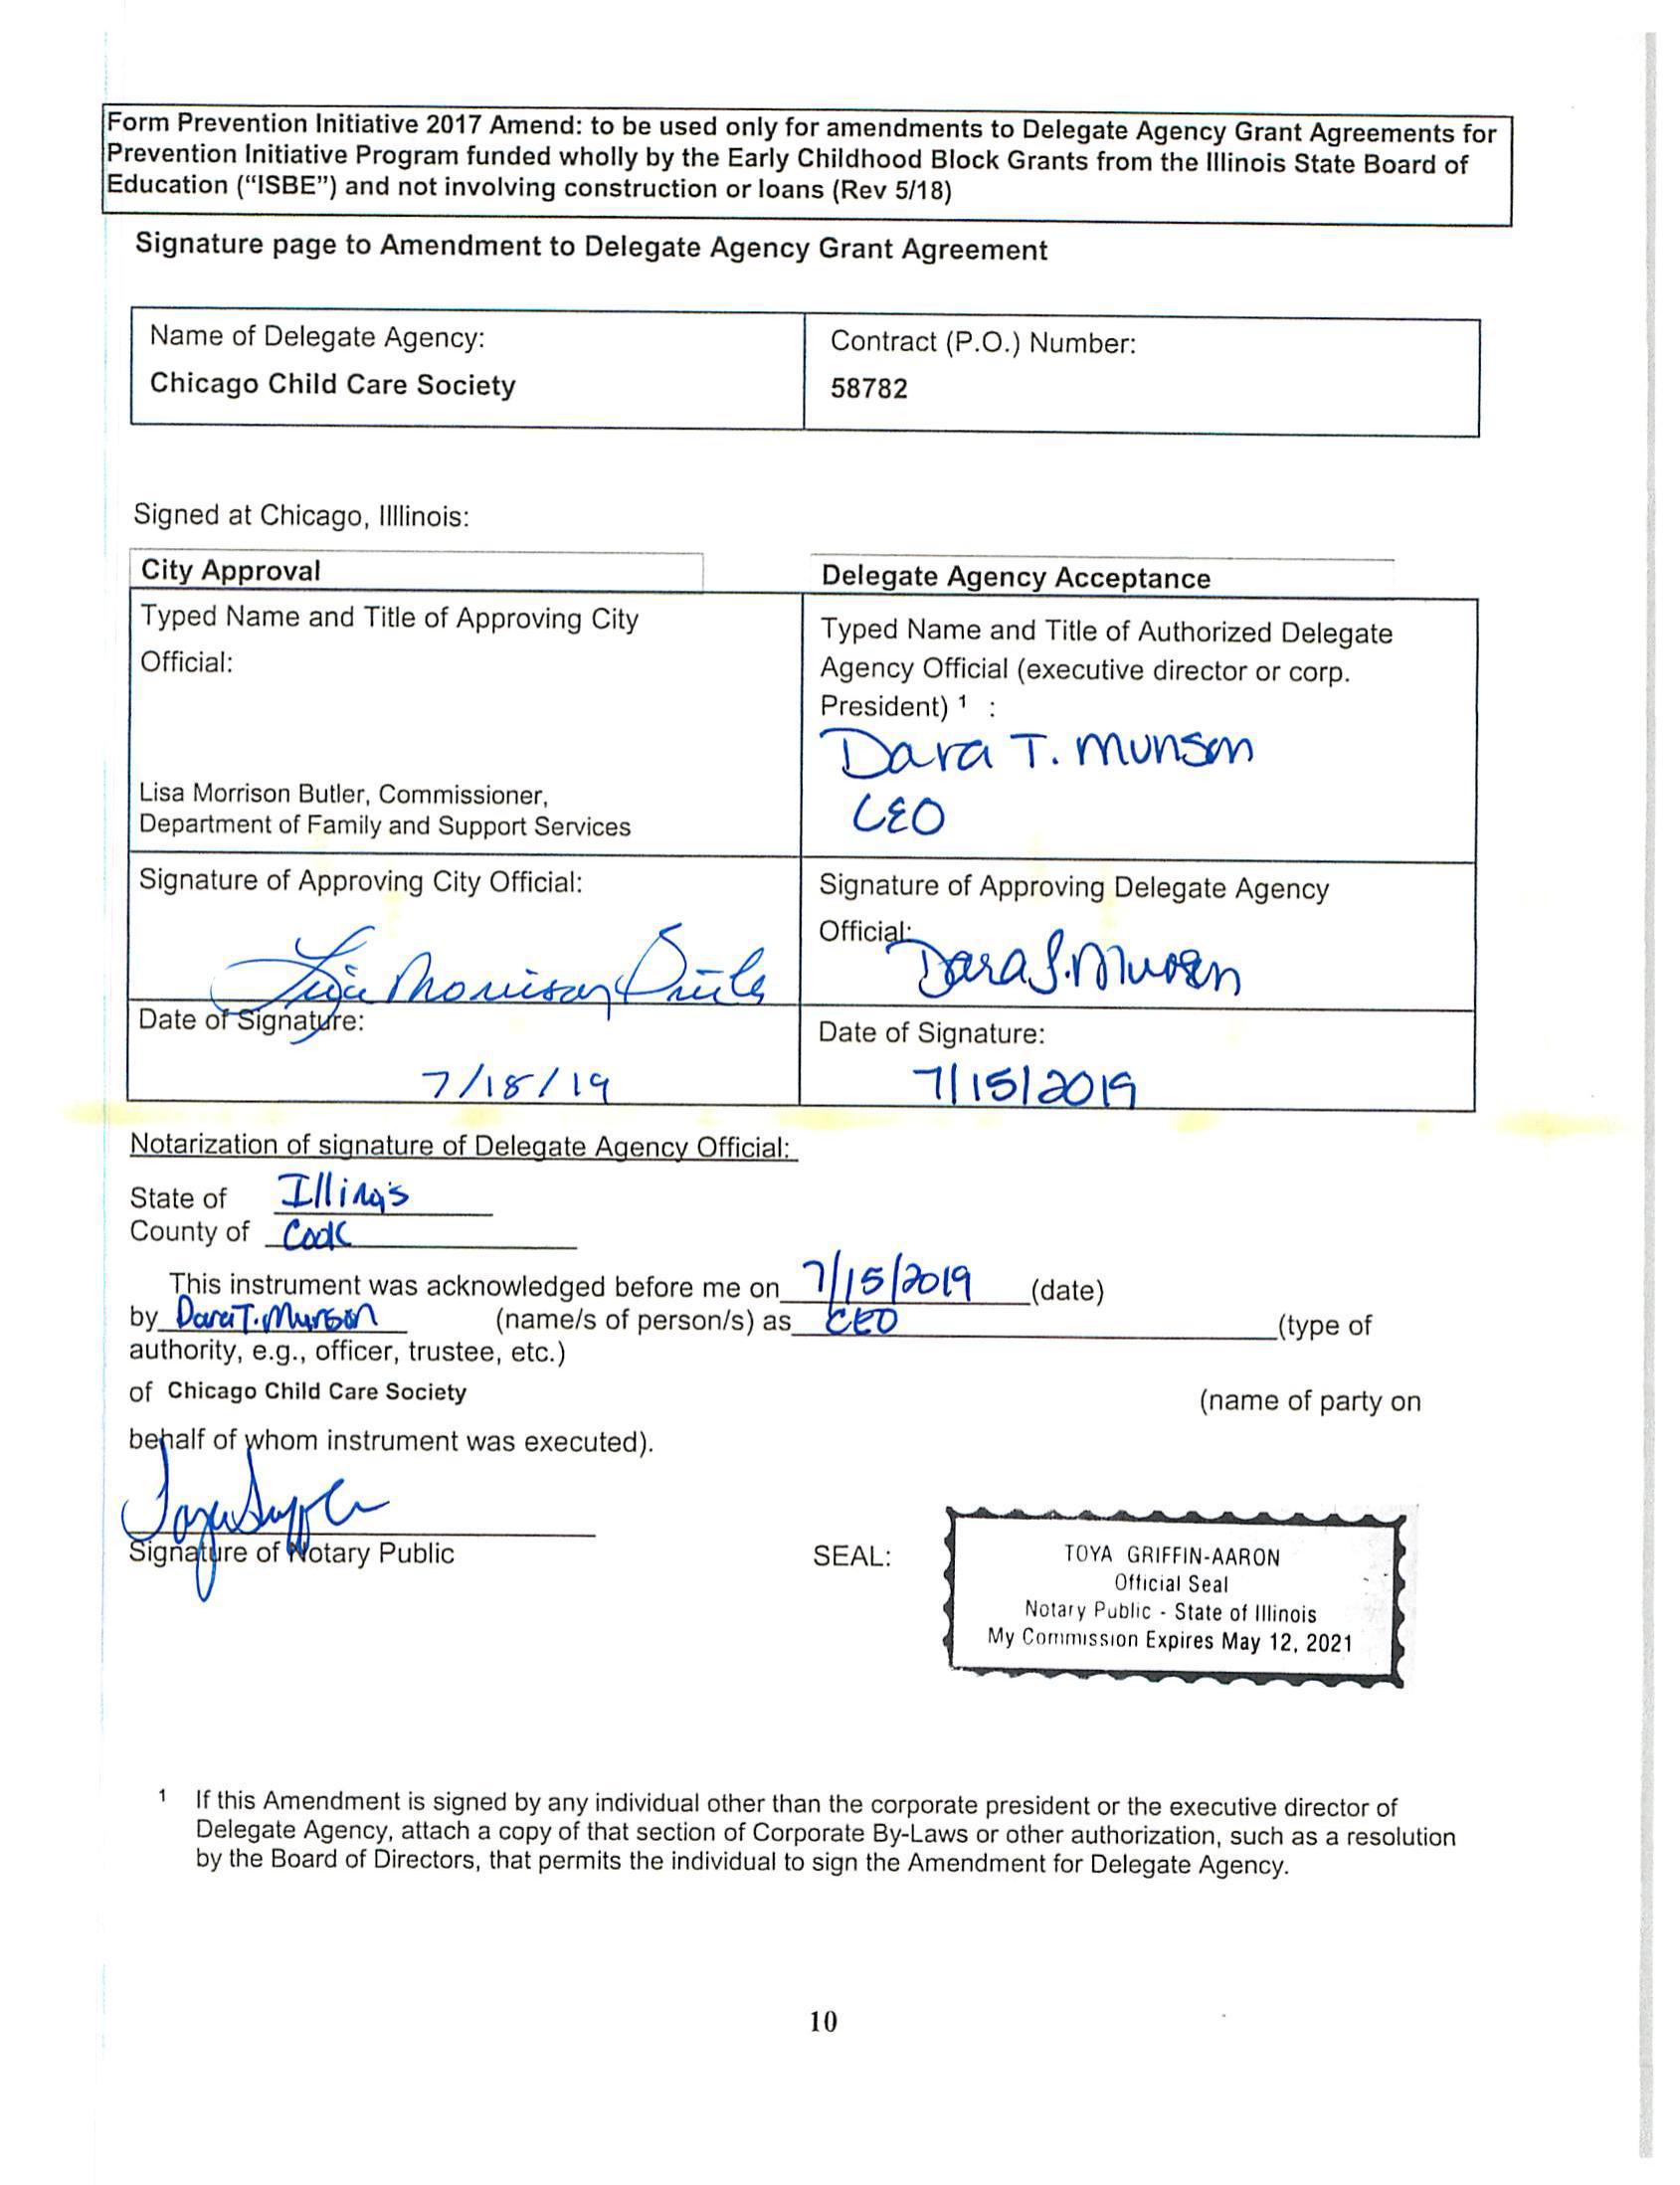 Form Prevention Initiative 2017 Amend: to be used only for amendments to Delegate Agency Grant Agreements for
Prevention Initiative Program funded wholly by the Early Childhood Block Grants from the Illinois State Board of
Education ("ISBE") and not involving construction or loans (Rev 5/18)
Signature page to Amendment to Delegate Agency Grant Agreement
Name of Delegate Agency:
Chicago Child Care Society
Contract (P.O.) Number:
58782
Signed at Chicago, Illlinois:
City Approval
Typed Name and Title of Approving City
Official:
Lisa Morrison Butler, Commissioner,
Department of Family and Support Services
Delegate Agency Acceptance
Typed Name and Title of Authorized Delegate
Agency Official (executive director or corp.
President) 1 :
Dara T. Munson
CEO
Signature of Approving City Official:
Lisa Morrison Butler
Signature of Approving Delegate Agency
Official:
Dara T. Munson
Date of Signature:
7/18/19
Date of Signature:
7/15/2019
Notarization of signature of Delegate Agency Official:
State of Illinois
County of Cook
This instrument was acknowledged before me on 7/15/2019 (date)
by Dara T. Munson (name/s of person/s) as CEO (type of
authority, e.g., officer, trustee, etc.)
of Chicago Child Care Society (name of party on
behalf of whom instrument was executed).
Signature of Notary Public
SEAL:
TOYA GRIFFIN-AARON
Official Seal
Notary Public - State of Illinois
My Commission Expires May 12, 2021
1 If this Amendment is signed by any individual other than the corporate president or the executive director of
Delegate Agency, attach a copy of that section of Corporate By-Laws or other authorization, such as a resolution
by the Board of Directors, that permits the individual to sign the Amendment for Delegate Agency.
10